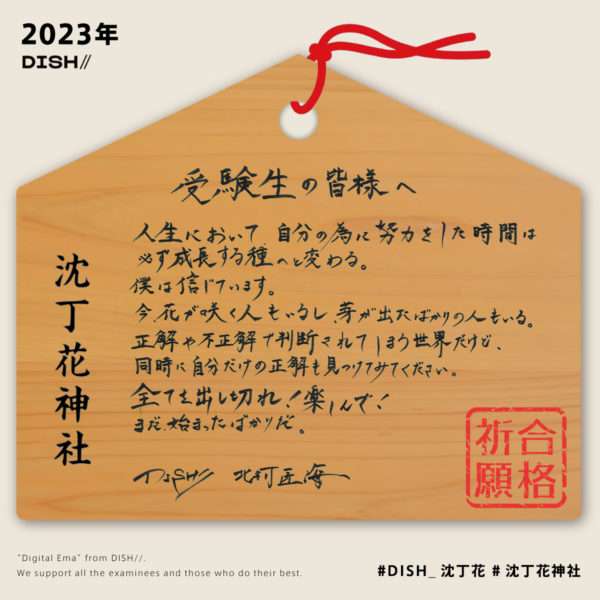 2023年
DISH//
沈丁花神社
受験生の皆様へ
人生において自分の為に努力をした時間は
必ず成長する種へと変わる。
僕は信じています。
今花が咲く人もいるし、芽が出たばかりの人もいる。
正解や不正解で判断されてしまう世界だけど、
同時に自分だけの正解も見つけてみてください。
全てを出し切れ！楽しんで！
まだ始まったばかりだ。
DISH// 北村匠海
合格祈願
"Digital Ema" from DISH//.
We support all the examinees and those who do their best.
#DISH_沈丁花 #沈丁花神社